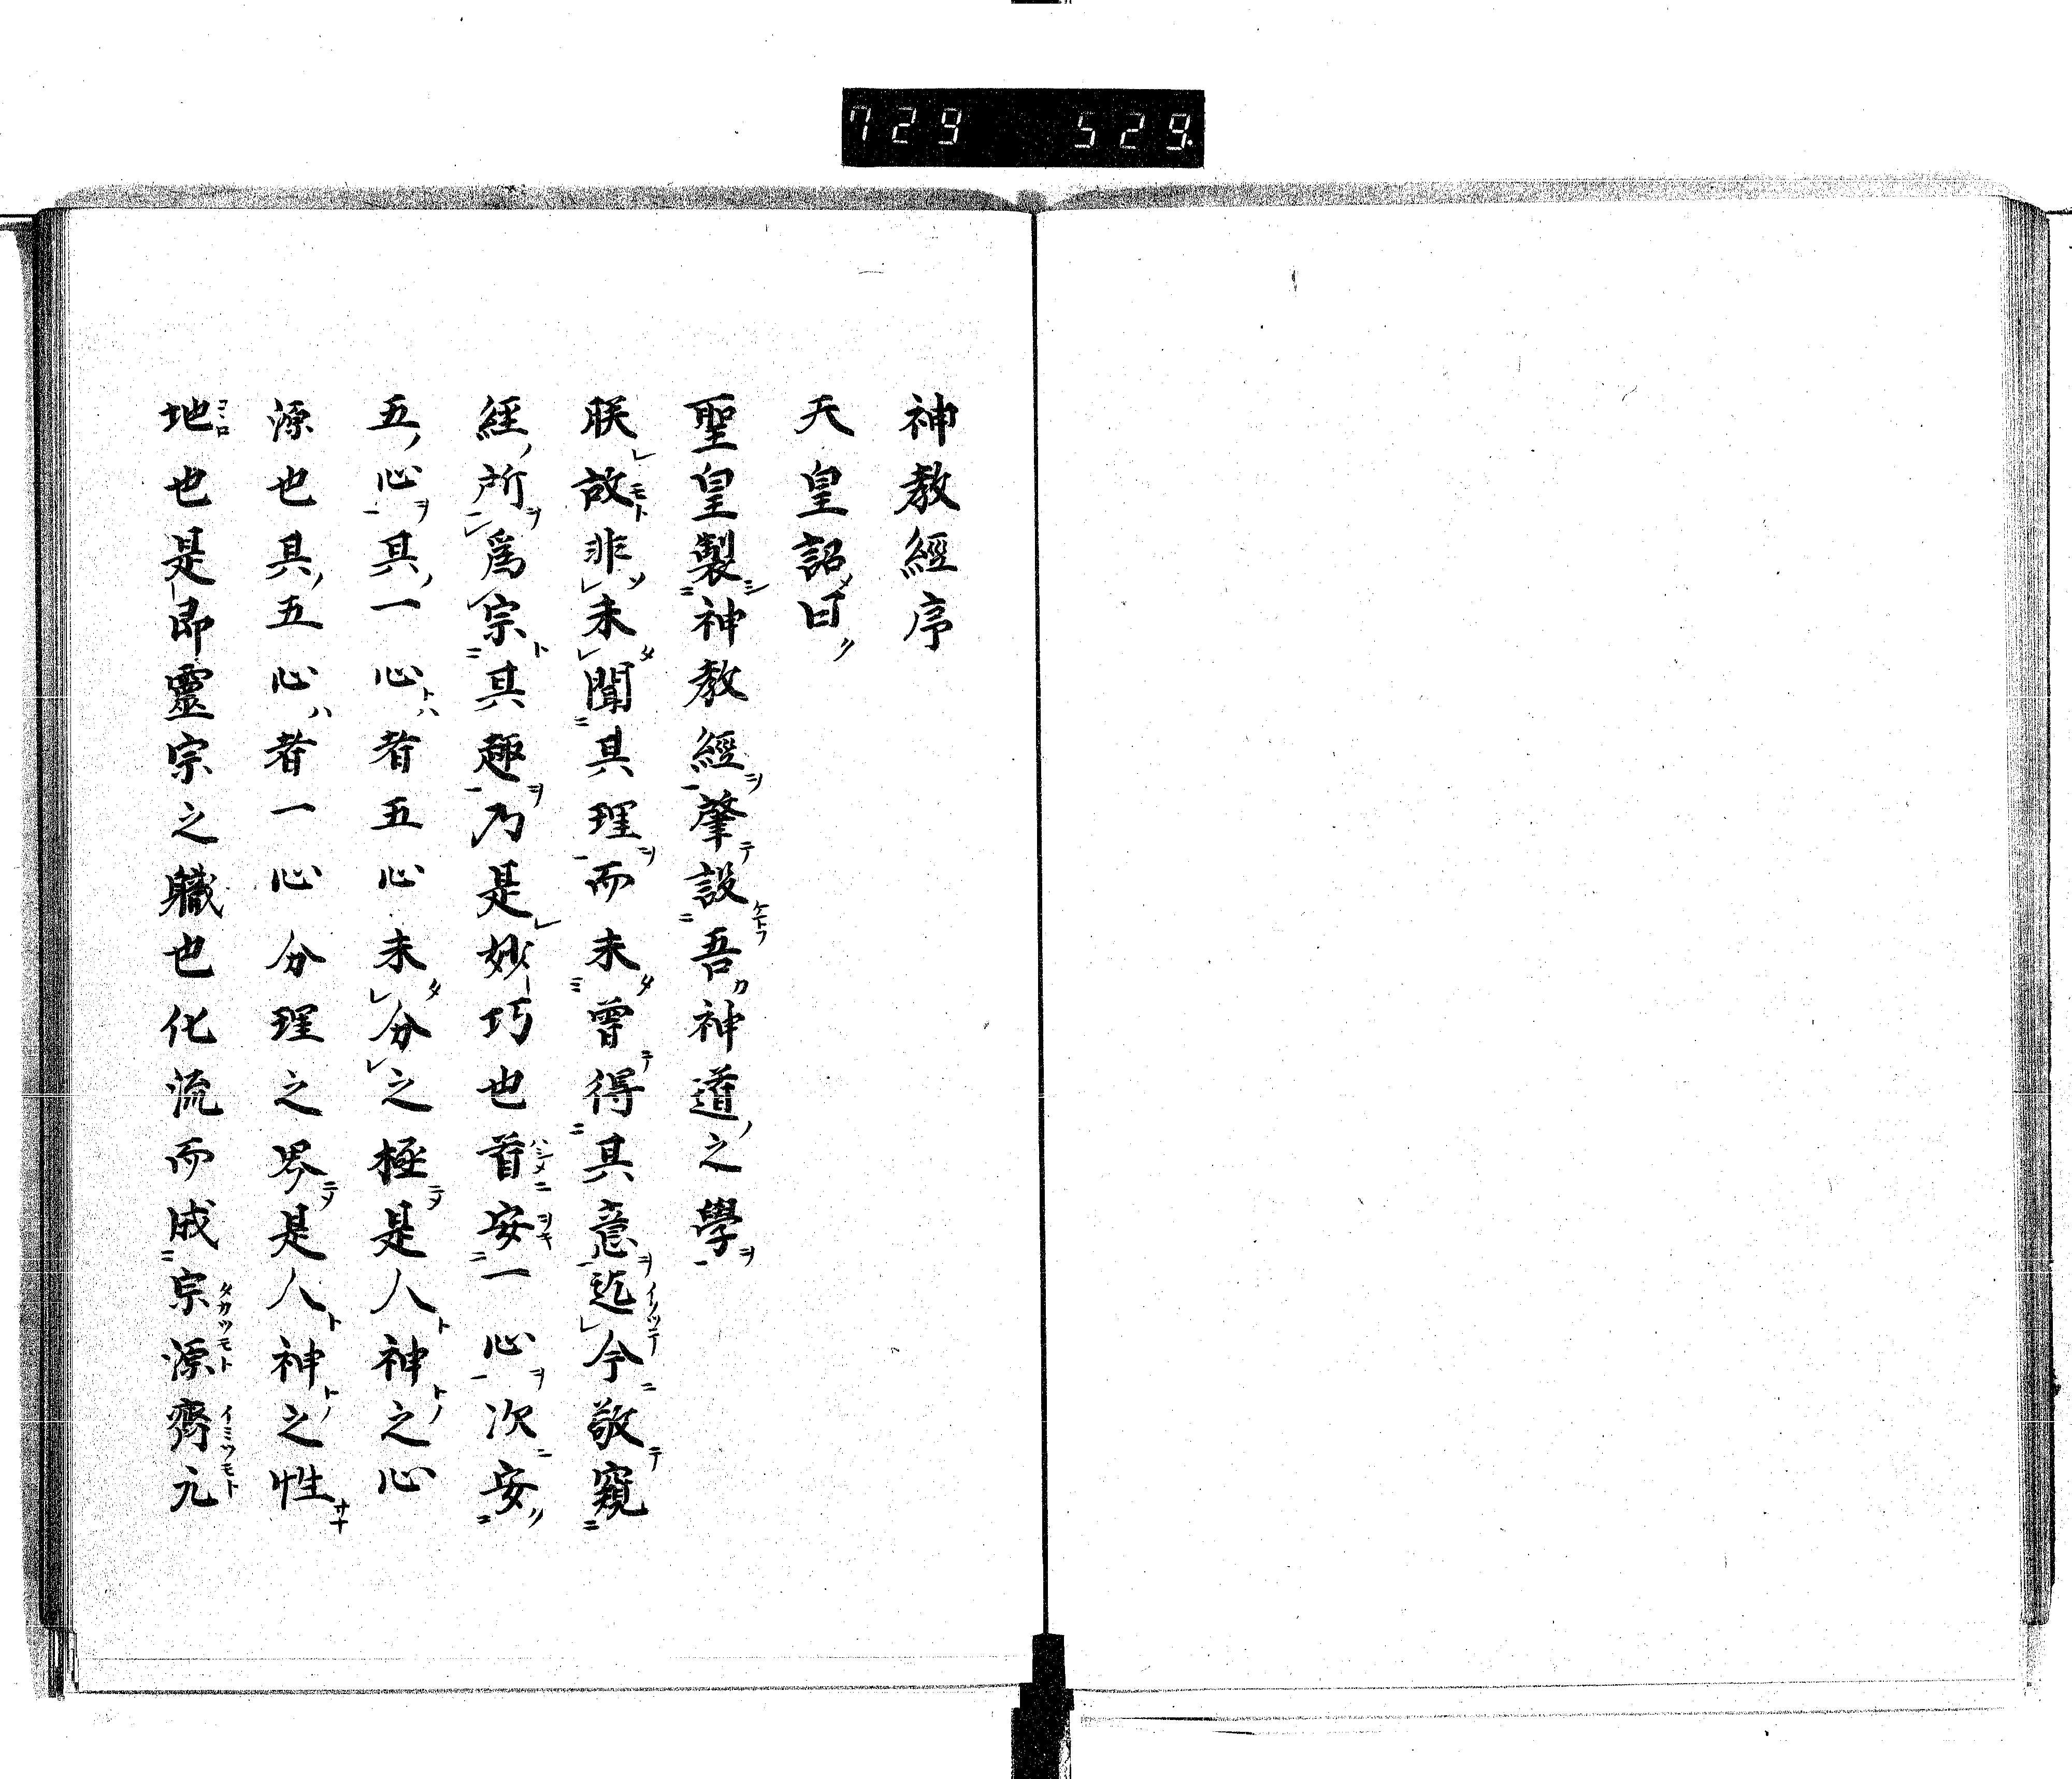 729 529.
神教經序
天皇詔曰
聖皇製神教經肇設吾神道之學
朕故非未聞其理而未曾得其意迄今敬窺
經所爲宗其趣乃是妙巧也首安一心次安
五心其一心者五心未分之極是人神之心
源也其五心者一心分理之界是人神之性
地也是即靈宗之職也化流而成宗源齊元